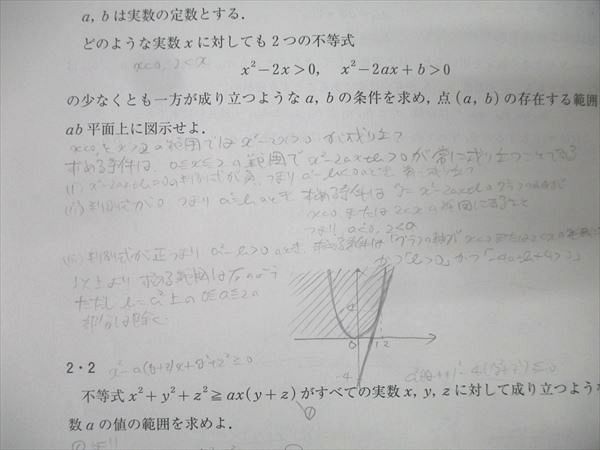 a, bは実数の定数とする.
どのような実数xに対しても2つの不等式
x<0, 2<x
x²−2x>0, x²−2ax+b>0
の少なくとも一方が成り立つようなa, bの条件を求め, 点(a, b)の存在する範囲
ab平面上に図示せよ.
x<0, x>2の範囲では x²−2x>0 が成り立つ
求める条件は, 0≦x≦2の範囲で x²−2ax+b>0が常に成り立つことである
(i) x²−2ax+b=0の判別式が負, つまり a²−b<0のとき
(ii) 判別式が0 つまり a²=bのとき 求める条件は y=x²−2ax+bのグラフの
x<0 または 2<xの範囲にあること
つまり, a<0, 2<a
(iii) 判別式が正 つまり a²−b>0のとき, 求める条件は「グラフの軸が x<0または2<xの
かつ「b>0」かつ「−4a+b+4>0」
以上より 求める範囲は下のよう
ただし b=a²上の 0≦a≦2の
部分は除く.
4
0
1 2
−4
2・2 x²−a(y+z)x+y²+z²≧0
不等式 x²+y²+z²≧ax(y+z)がすべての実数x, y, zに対して成り立つような
数aの値の範囲を求めよ.
①